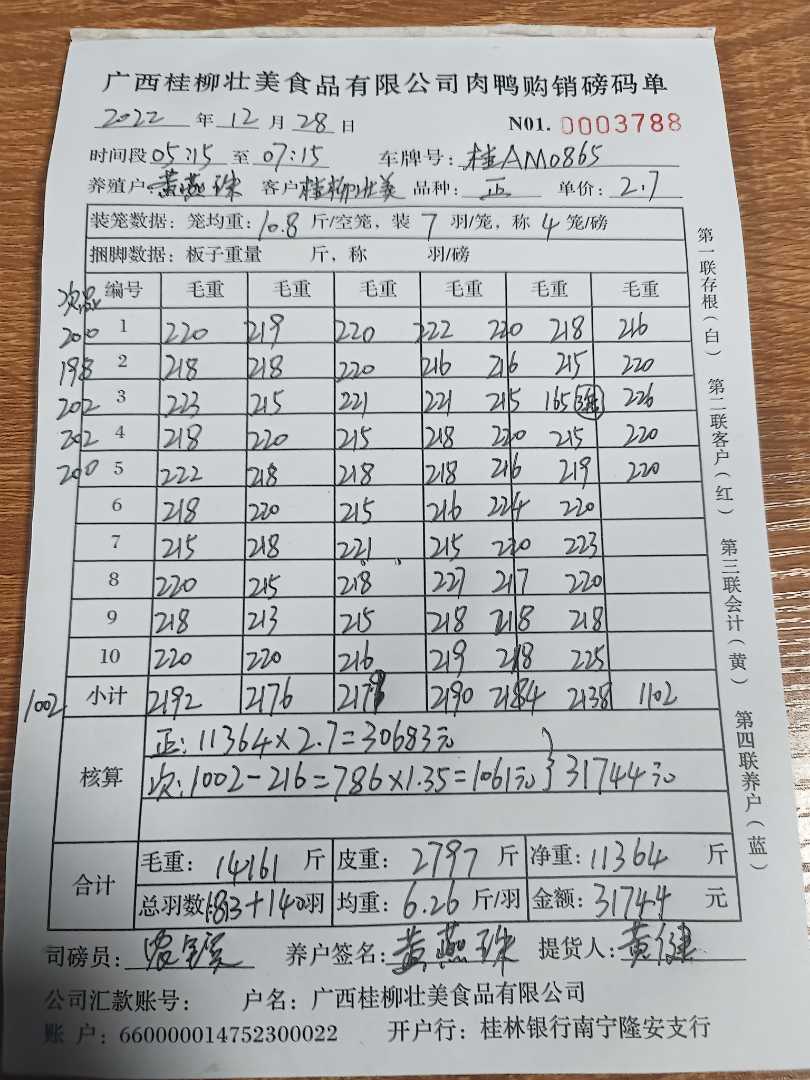 广西桂柳壮美食品有限公司肉鸭购销磅码单
2022 年 12 月 28 日 N01. 0003788
时间段 05:15 至 07:15 车牌号: 桂AM0865
养殖户: 黄燕珠 客户 桂柳壮美 品种: 正 单价: 2.7
装笼数据: 笼均重: 10.8 斤/空笼, 装 7 羽/笼, 称 4 笼/磅
捆脚数据: 板子重量 斤, 称 羽/磅
次品 编号 毛重 毛重 毛重 毛重 毛重 毛重
200 1 220 219 220 222 220 218 216
198 2 218 218 220 216 216 215 220
202 3 223 215 221 221 215 165 226
202 4 218 220 215 218 220 215 220
200 5 222 218 218 218 216 219 220
6 218 220 215 216 224 220
7 215 218 221 215 220 223
8 220 215 218 227 217 220
9 218 213 215 218 218 218
10 220 220 216 219 218 225
1002 小计 2192 2176 2179 2190 2184 2138 1102
核算
正: 11364×2.7=30683元
次: 1002-216=786×1.35=1061元 } 31744元
合计
毛重: 14161 斤 皮重: 2797 斤 净重: 11364 斤
总羽数 1813+140羽 均重: 6.26 斤/羽 金额: 31744 元
司磅员: 养户签名: 黄燕珠 提货人: 黄健
公司汇款账号: 户名: 广西桂柳壮美食品有限公司
账 户: 660000014752300022 开户行: 桂林银行南宁隆安支行
第一联存根(白)
第二联客户(红)
第三联会计(黄)
第四联养户(蓝)